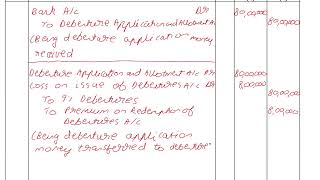 Bank A/c Dr 80,00,000
To Debenture Application and Allotment A/c 80,00,000
(Being debenture application money
received
Debenture Application and Allotment A/c Dr 80,00,000
Loss on issue of Debentures A/c Dr 8,00,000
To 9% Debentures 80,00,000
To Premium on Redemption of 8,00,000
Debentures A/c
(Being debenture application
money transferred to debenture